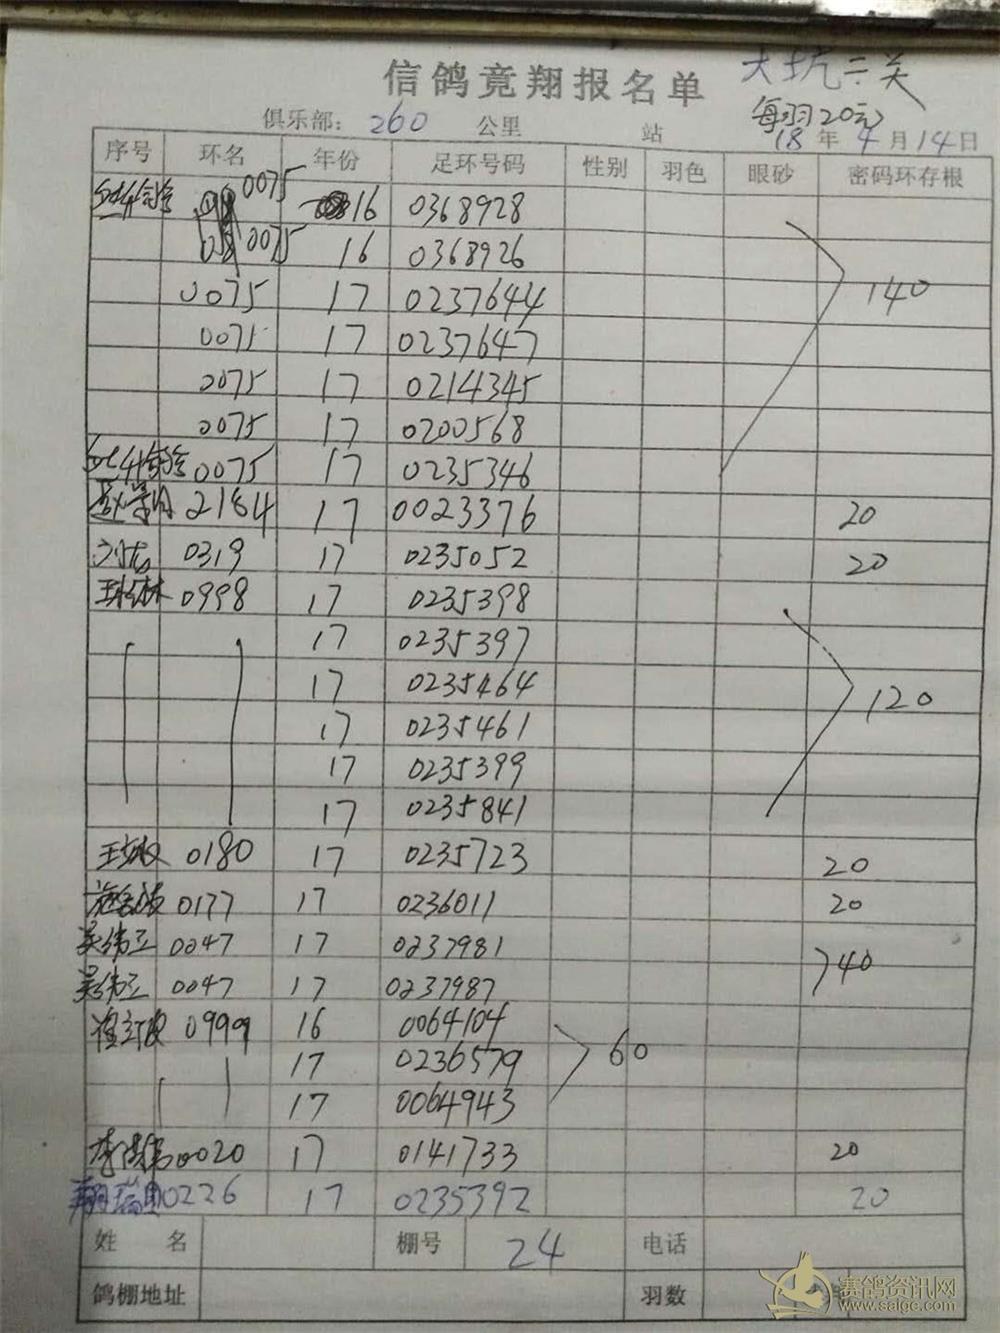 信鸽竞翔报名单 大坑二关
每羽20元
俱乐部： 260 公里 站 18 年 4 月 14 日
序号 环名 年份 足环号码 性别 羽色 眼砂 密码环存根
0075 16 0368928
0075 16 0368926
0075 17 0237644 140
0075 17 0237647
0075 17 0214345
0075 17 0200568
0075 17 0235346
2184 17 0023376 20
0319 17 0235052 20
0998 17 0235398
17 0235397
17 0235464
17 0235461 120
17 0235399
17 0235841
0180 17 0235723 20
0177 17 0236011 20
吴纬立 0047 17 0237981 40
吴纬立 0047 17 0237987
0999 16 0064104
17 0236579 60
17 0064943
0020 17 0141733 20
翔瑞 0226 17 0235392 20
姓 名 棚号 24 电话
鸽棚地址 羽数
赛鸽资讯网
www.saige.com